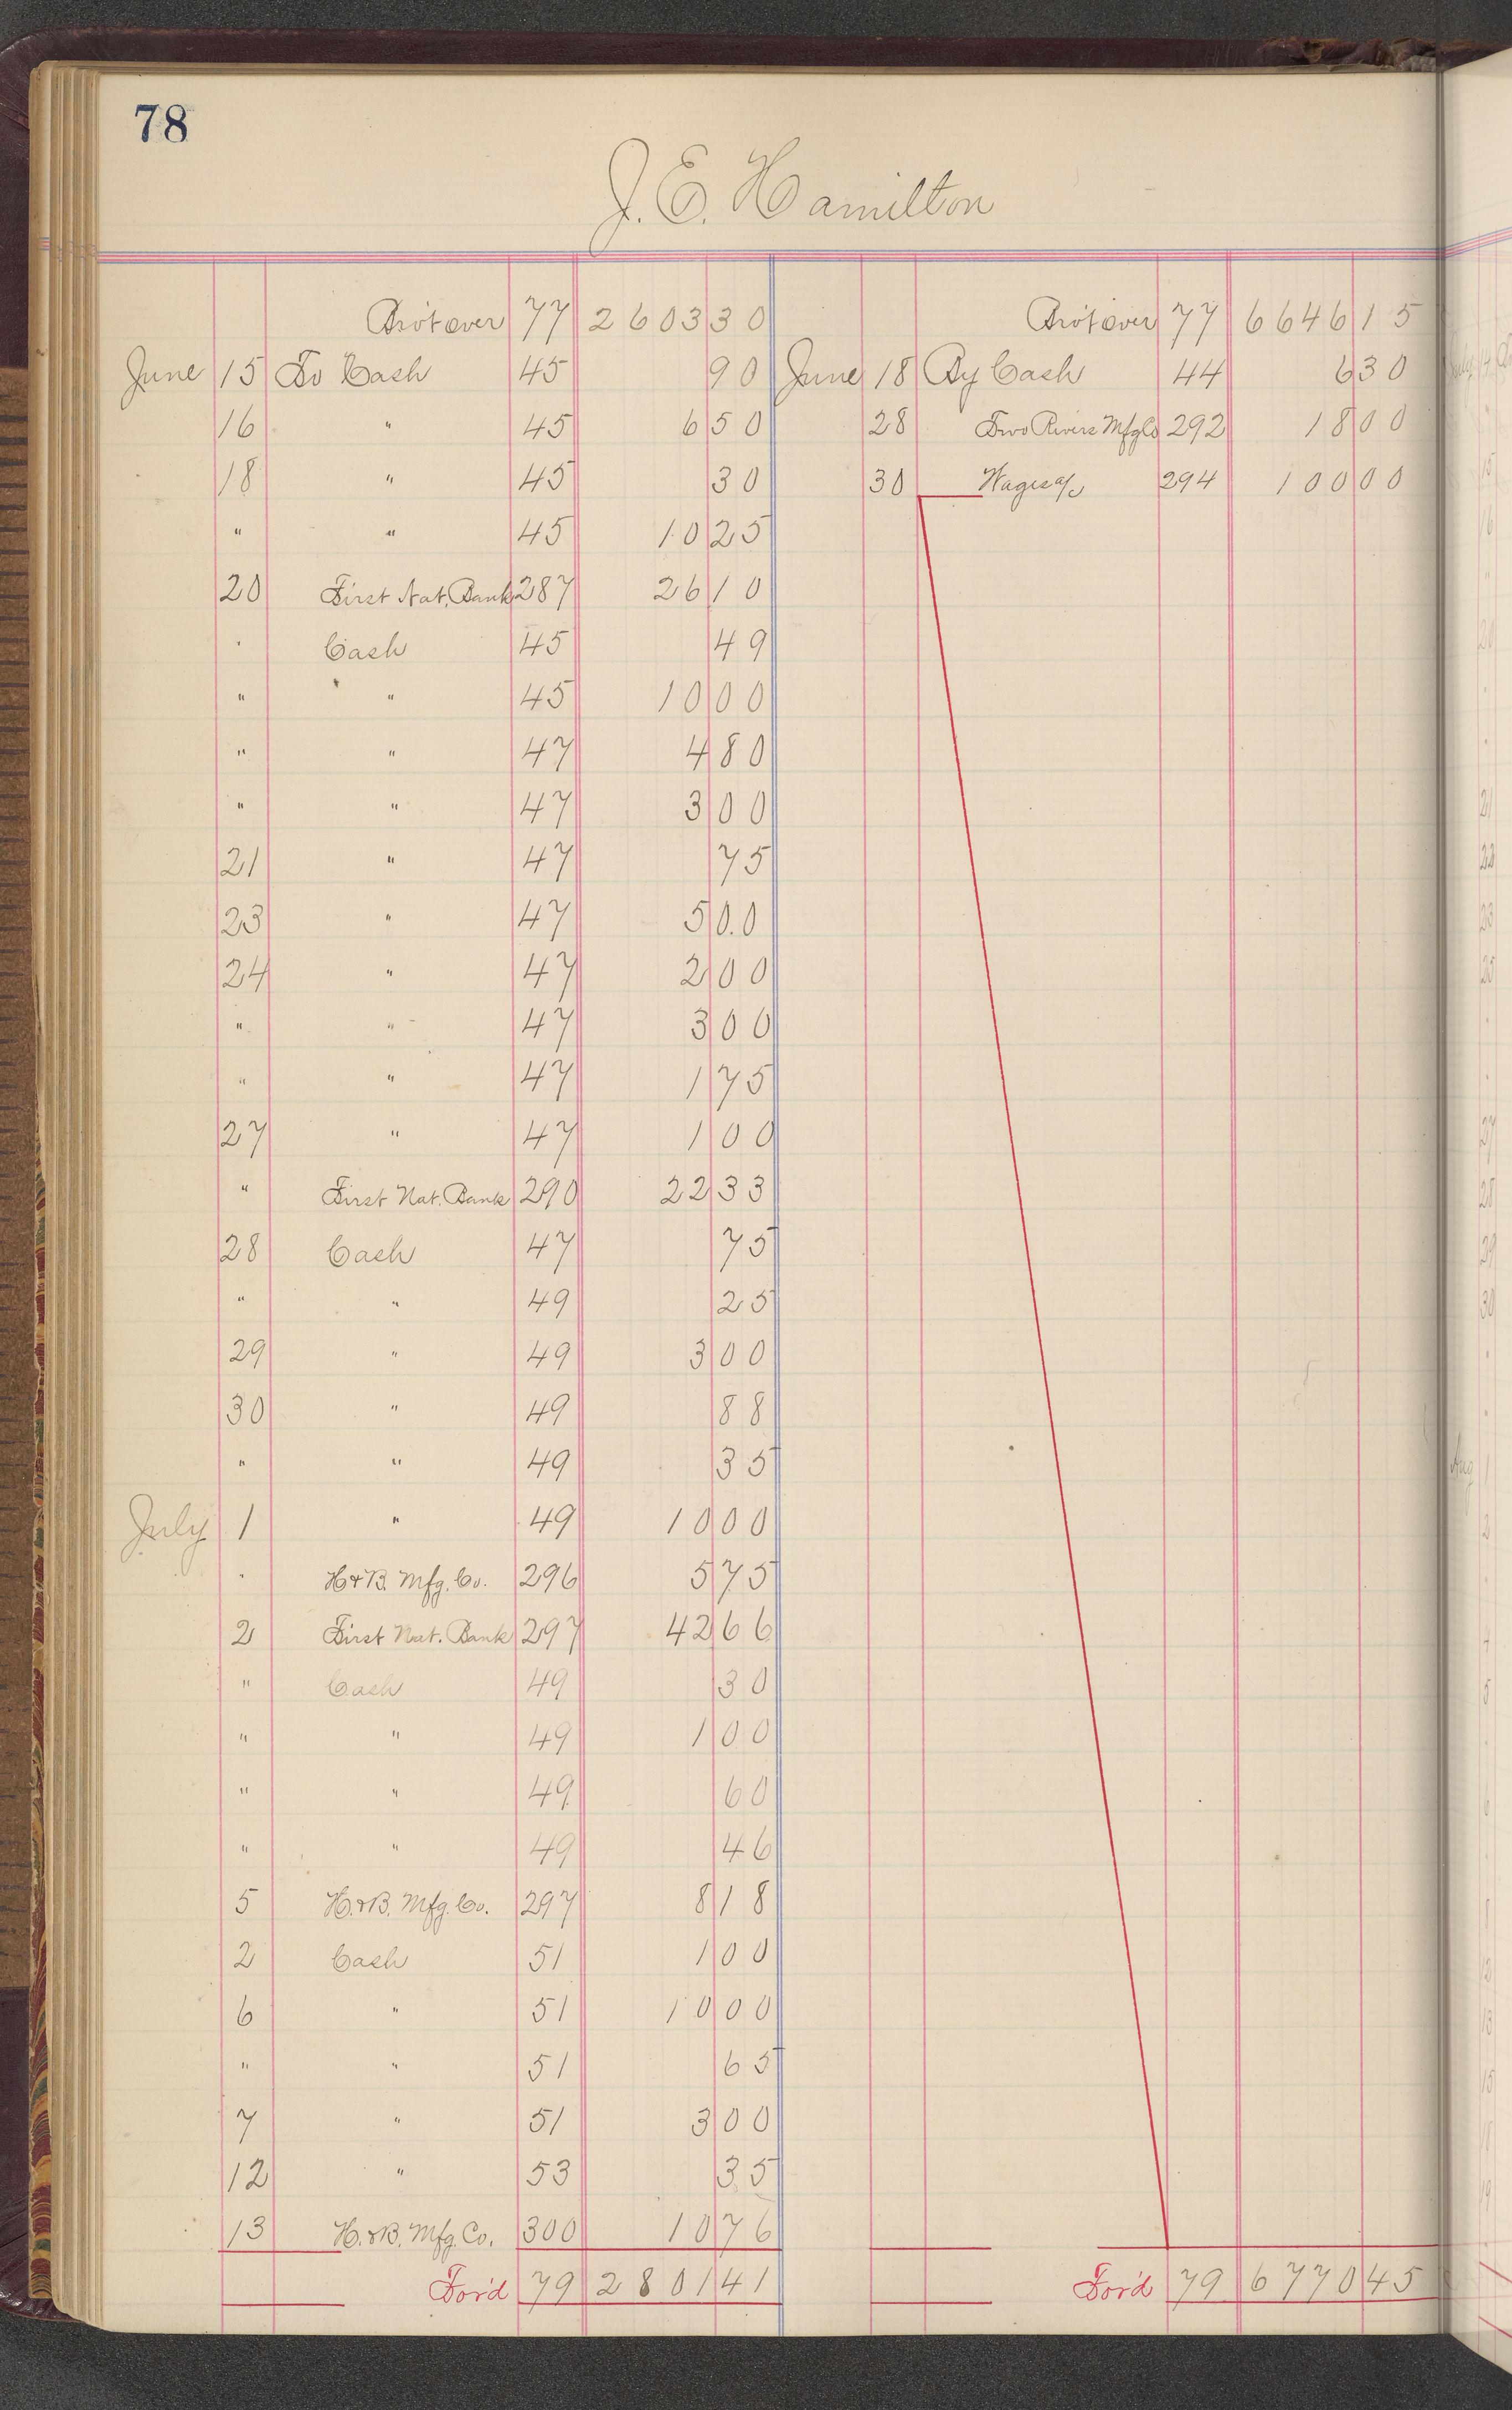 78
J. E. Hamilton
Bro't over 77 2603 30
June 15 To Cash 45 90
16 " 45 6 50
18 " 45 30
" " 45 10 25
20 First Nat. Bank 287 26 10
" Cash 45 49
" " 45 10 00
" " 47 4 80
" " 47 3 00
21 " 47 75
23 " 47 5 00
24 " 47 2 00
" " 47 3 00
" " 47 1 75
27 " 47 1 00
" First Nat. Bank 290 22 33
28 Cash 47 75
" " 49 25
29 " 49 3 00
30 " 49 88
" " 49 35
July 1 " 49 10 00
" H & B. Mfg. Co. 296 5 75
2 First Nat. Bank 297 42 66
" Cash 49 30
" " 49 1 00
" " 49 60
" " 49 46
5 H. & B. Mfg. Co. 297 8 18
2 Cash 51 1 00
6 " 51 10 00
" " 51 65
7 " 51 3 00
12 " 53 35
13 H. & B. Mfg. Co. 300 10 76
For'd 79 2801 41
Bro't over 77 6646 15
June 18 By Cash 44 6 30
28 Two Rivers Mfg Co 292 18 00
30 Wages a/c 294 100 00
For'd 79 6770 45